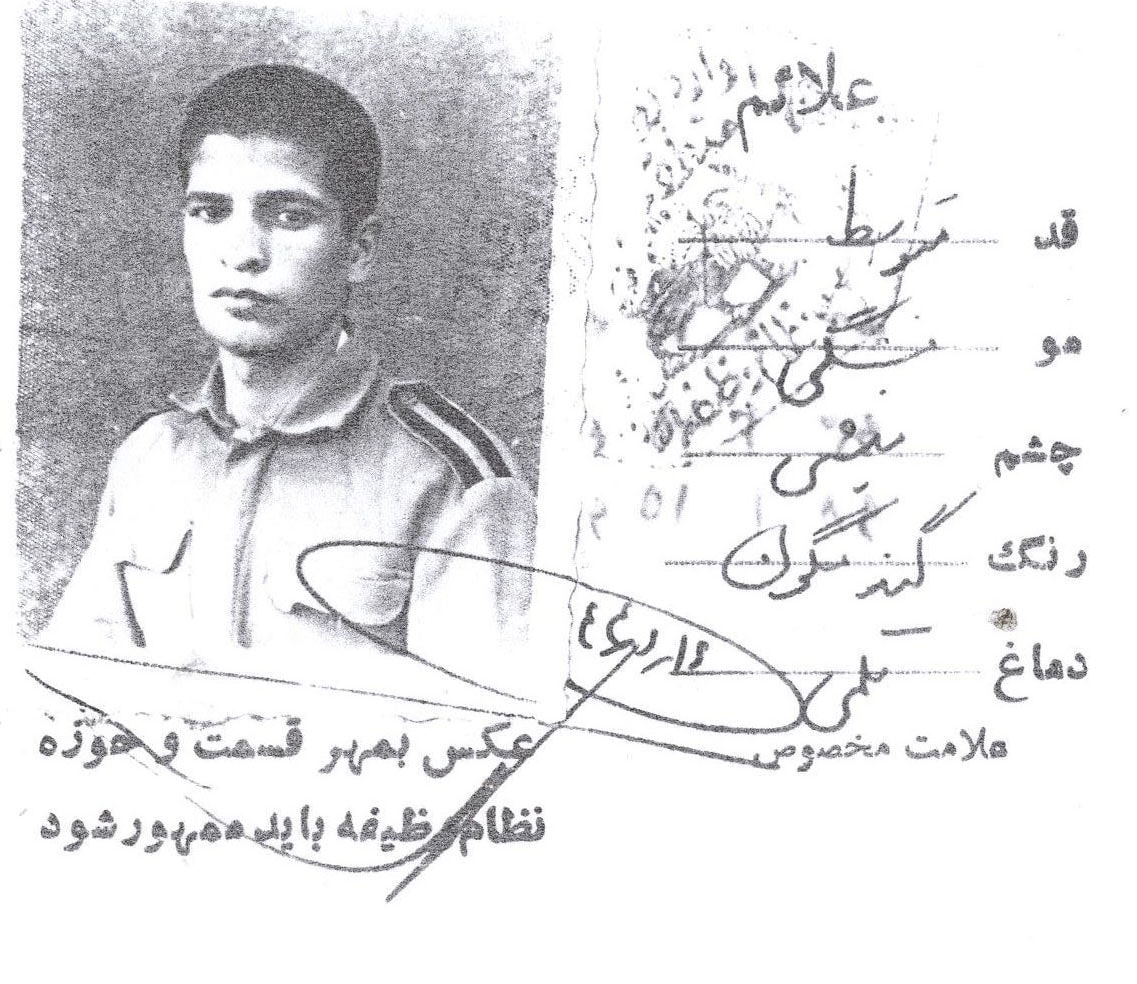 علائم
قد متوسط
مو مشکی
چشم میشی
رنگ گندمگون
دماغ قلمی
علامت مخصوص
عکس بمهر قسمت و حوزه
نظام وظیفه باید ممهور شود